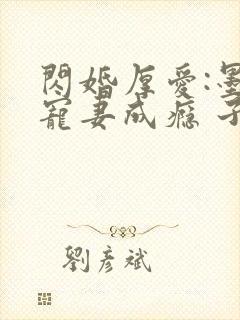 閃婚厚愛:墨
寵妻成癮 子
劉彥斌